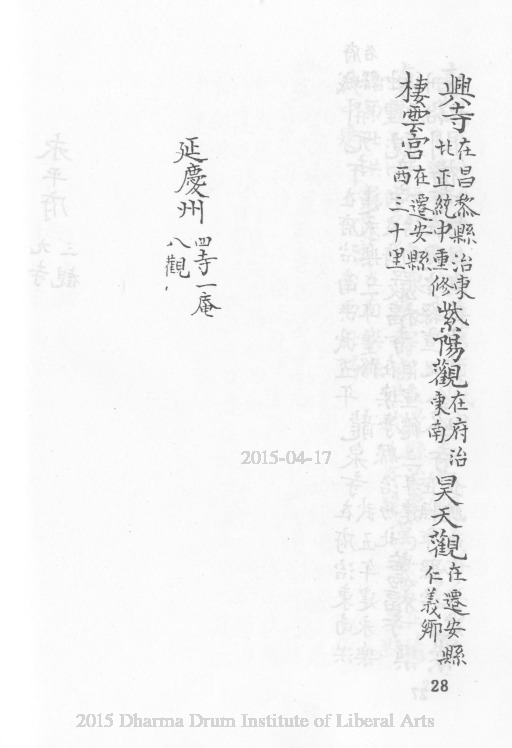 興寺在昌黎縣治東北正統中重修紫陽觀在府治東南昊天觀在遷安縣仁義鄉
棲雲宮在遷安縣西三十里
延慶州四寺一庵八觀
2015-04-17
28
2015 Dharma Drum Institute of Liberal Arts